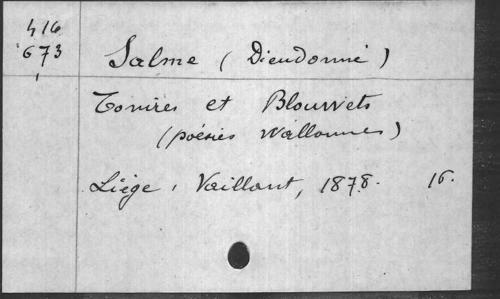 416
673
Salme (Dieudonné)
Tonires et Blouwets
(poésies wallonnes)
Liège, Vaillant, 1878. 16.